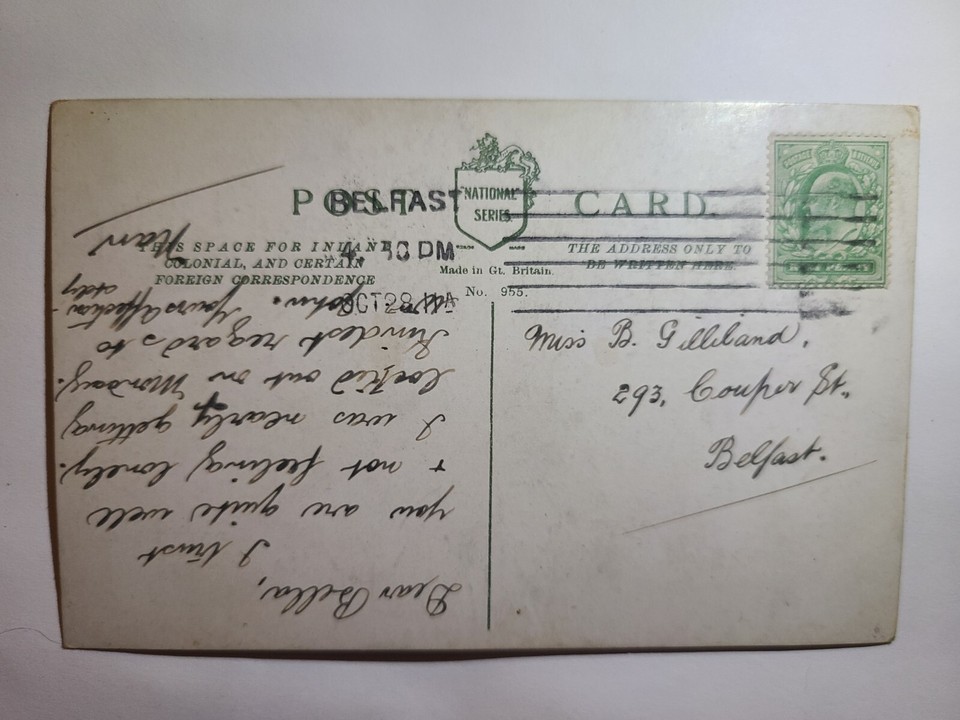 POST CARD.
NATIONAL
SERIES
BELFAST
PM
OCT 28 11
THIS SPACE FOR INLAND
COLONIAL, AND CERTAIN
FOREIGN CORRESPONDENCE
Made in Gt. Britain.
No. 955.
THE ADDRESS ONLY TO
BE WRITTEN HERE.
POSTAGE
HALF PENNY
Miss B. Gilliland,
293, Couper St.,
Belfast.
Dear Bella,
I trust
you are quite well
+ not feeling lonely.
I was nearly getting
locked out on Monday.
Kindest regards to
John. Yours affection-
ately
Nan